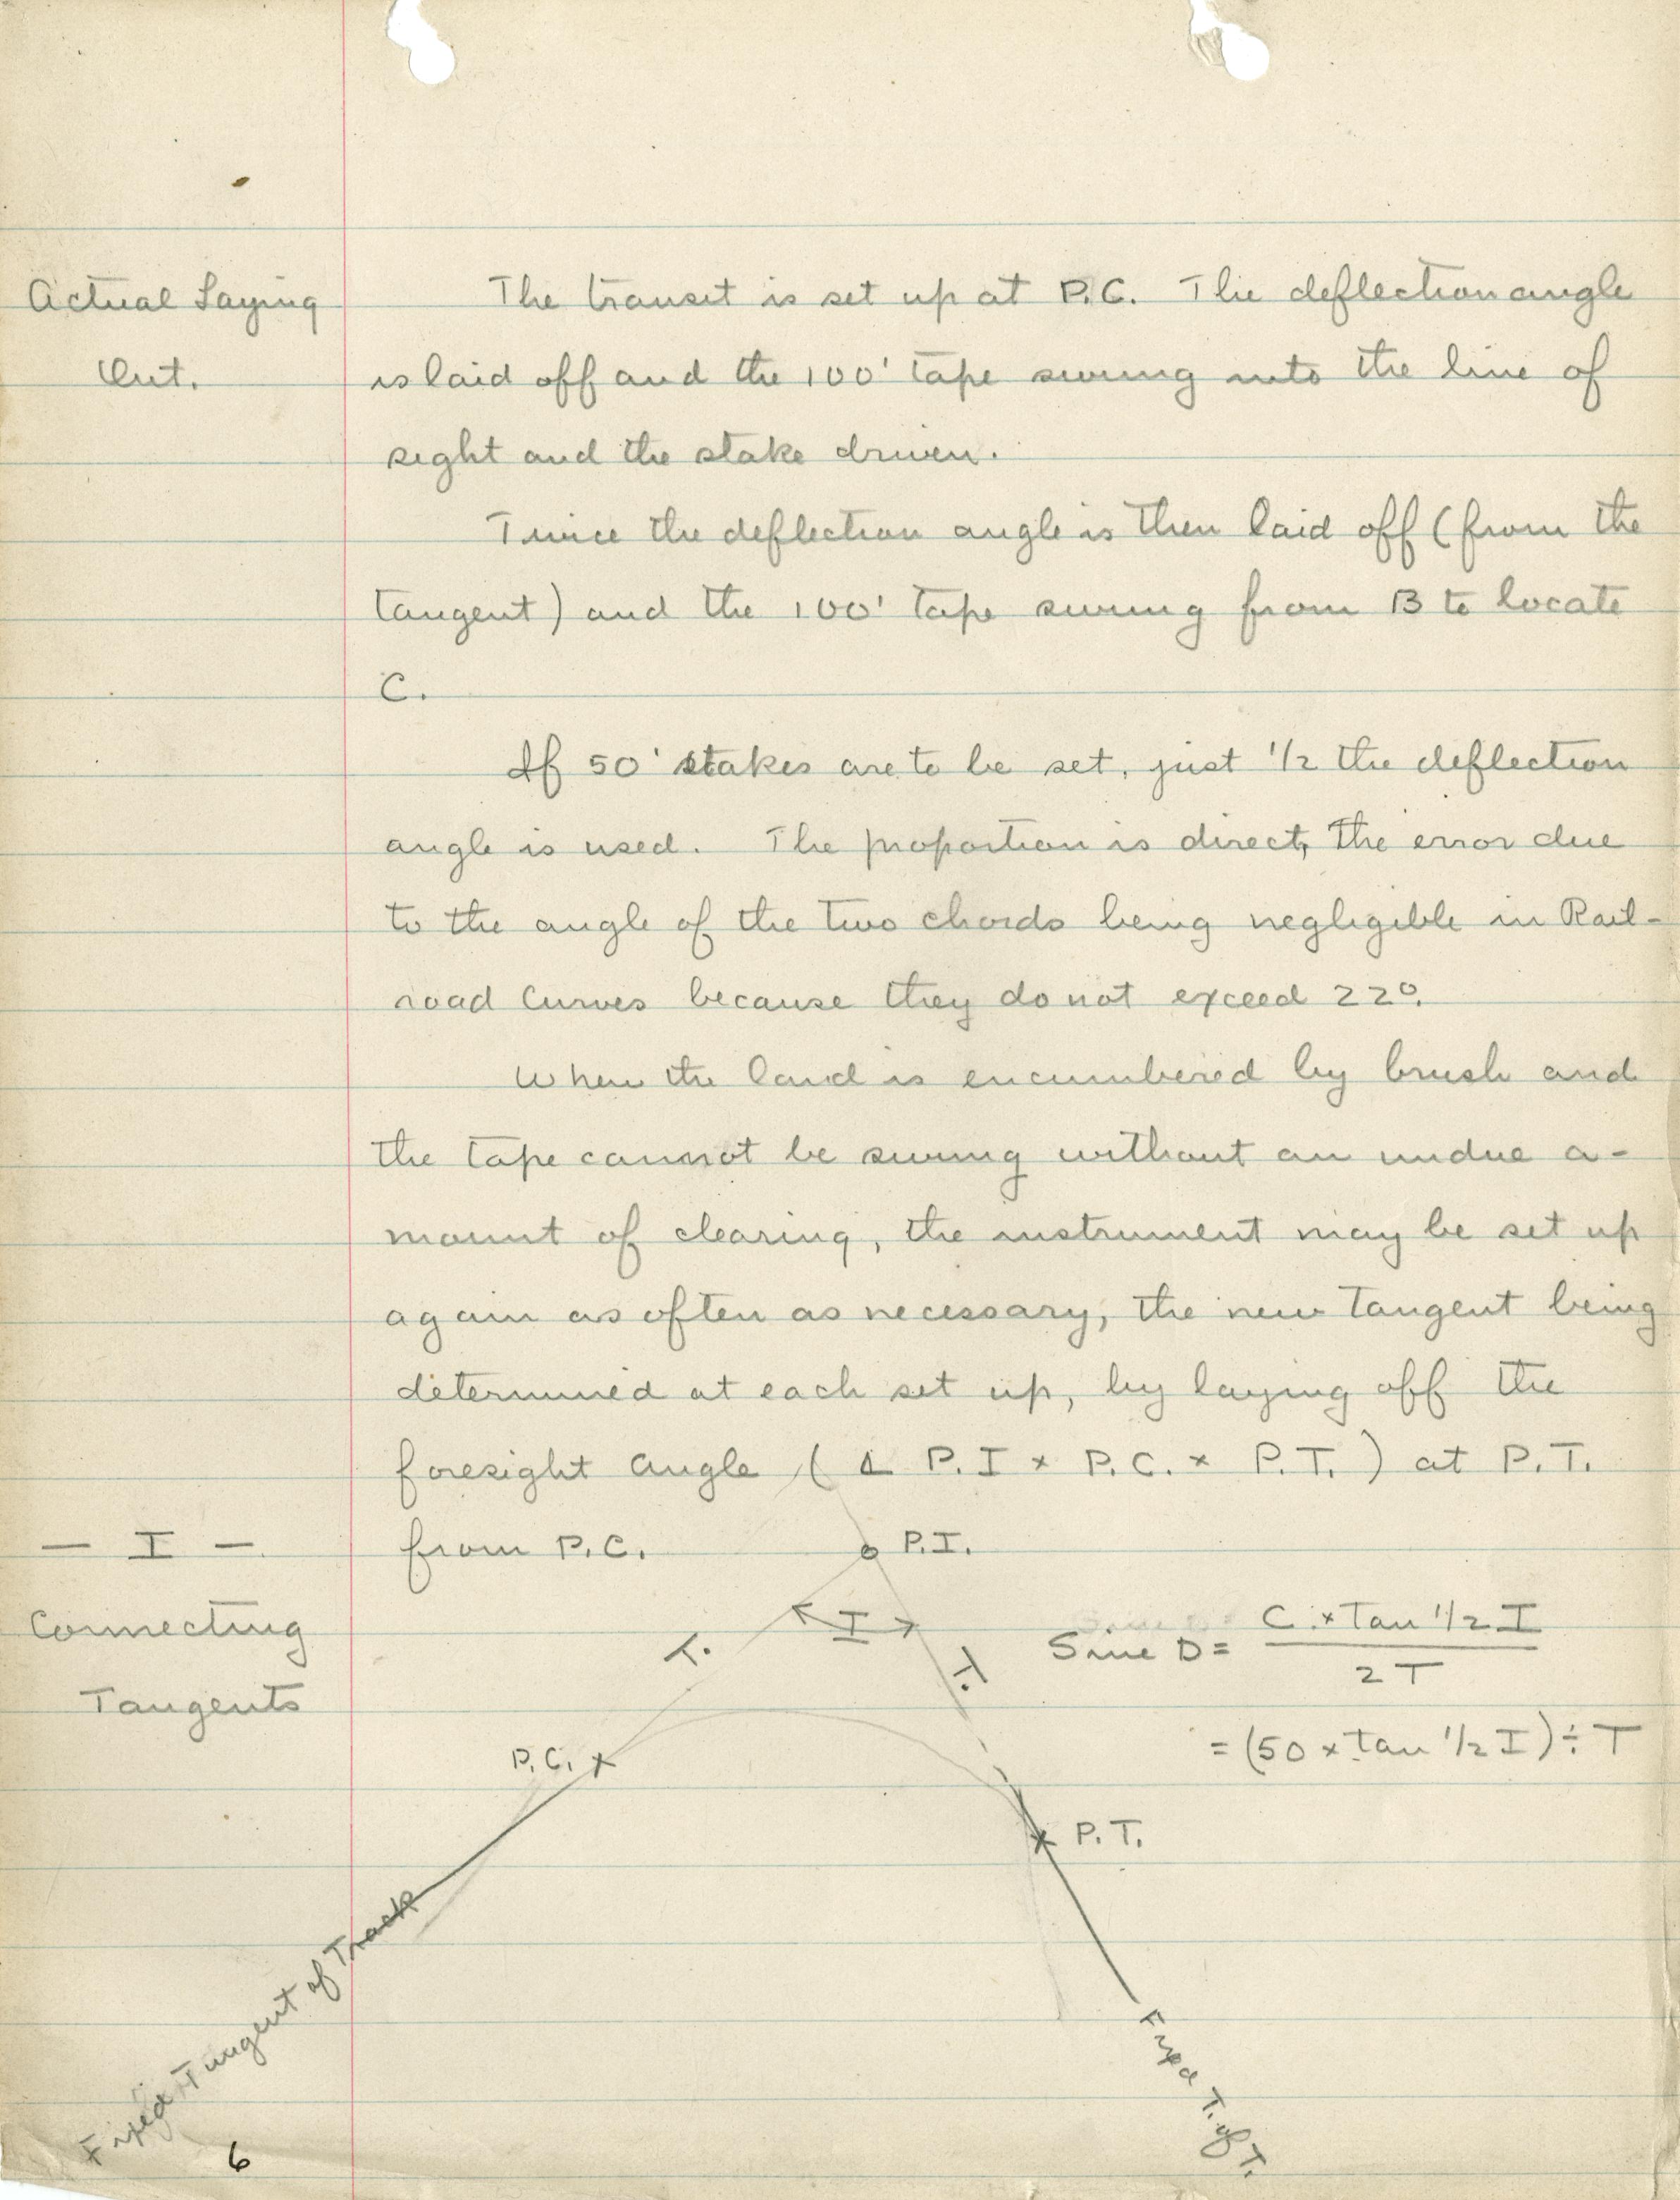 Actual Laying
Out.
The transit is set up at P.C. The deflection angle
is laid off and the 100' tape swung into the line of
sight and the stake driven.
Twice the deflection angle is then laid off (from the
tangent) and the 100' tape swung from B to locate
C.
If 50' stakes are to be set, just 1/2 the deflection
angle is used. The proportion is direct, the error due
to the angle of the two chords being negligible in Rail-
road Curves because they do not exceed 22°.
When the land is encumbered by brush and
the tape cannot be swung without an undue a-
mount of clearing, the instrument may be set up
again as often as necessary, the new tangent being
determined at each set up, by laying off the
foresight angle (∠ P.I × P.C. × P.T.) at P.T.
from P.C.
— I —
Connecting
Tangents
P.I.
I
T.
T.
Sine D = C × Tan 1/2 I
2 T
= (50 × tan 1/2 I) ÷ T
P.C.
P.T.
Fixed Tangent of Track
Fixed T. of T.
6